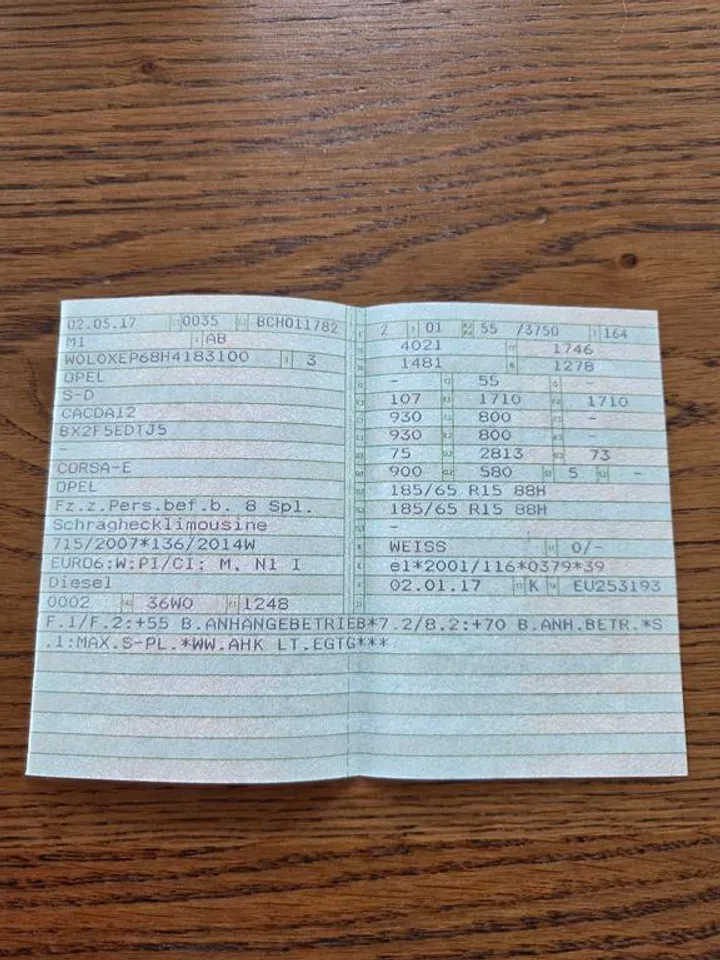 02.05.17 0035 BCH011782
M1 AB
W0L0XEP68H4183100 3
OPEL
S-D
CACDA12
BX2F5EDTJ5
-
CORSA-E
OPEL
Fz.z.Pers.bef.b. 8 Spl.
Schräghecklimousine
715/2007*136/2014W
EURO6;W;PI/CI; M, N1 I
Diesel
0002 36W0 1248
2 01 55 /3750 164
4021 1746
1481 1278
- 55 -
107 1710 1710
930 800 -
930 800 -
75 2813 73
900 580 5 -
185/65 R15 88H
185/65 R15 88H
-
WEISS 0/-
e1*2001/116*0379*39
02.01.17 K EU253193
F.1/F.2:+55 B.ANHÄNGEBETRIEB*7.2/8.2:+70 B.ANH.BETR.*S
.1:MAX.S-PL.*WW.AHK LT.EGTG***